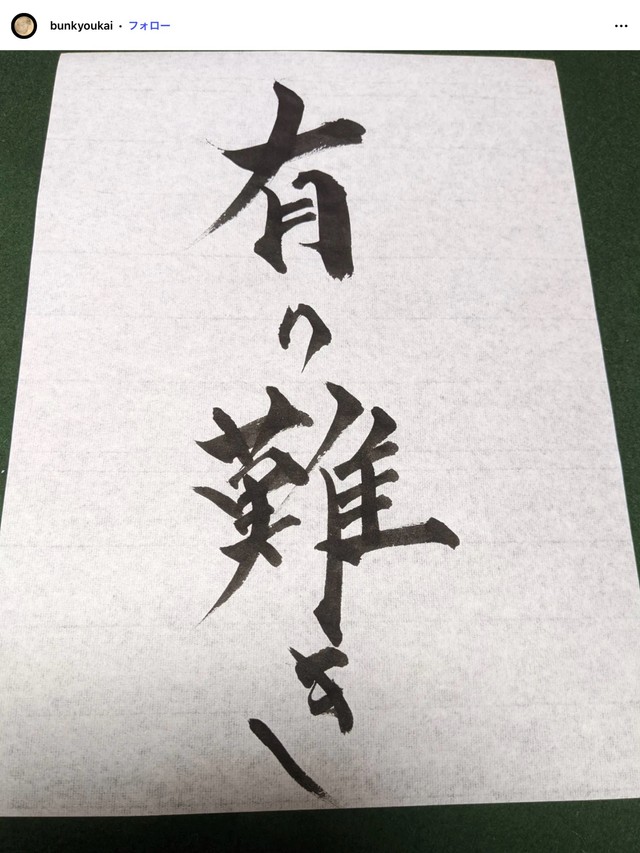 bunkyoukai • フォロー
有り難き